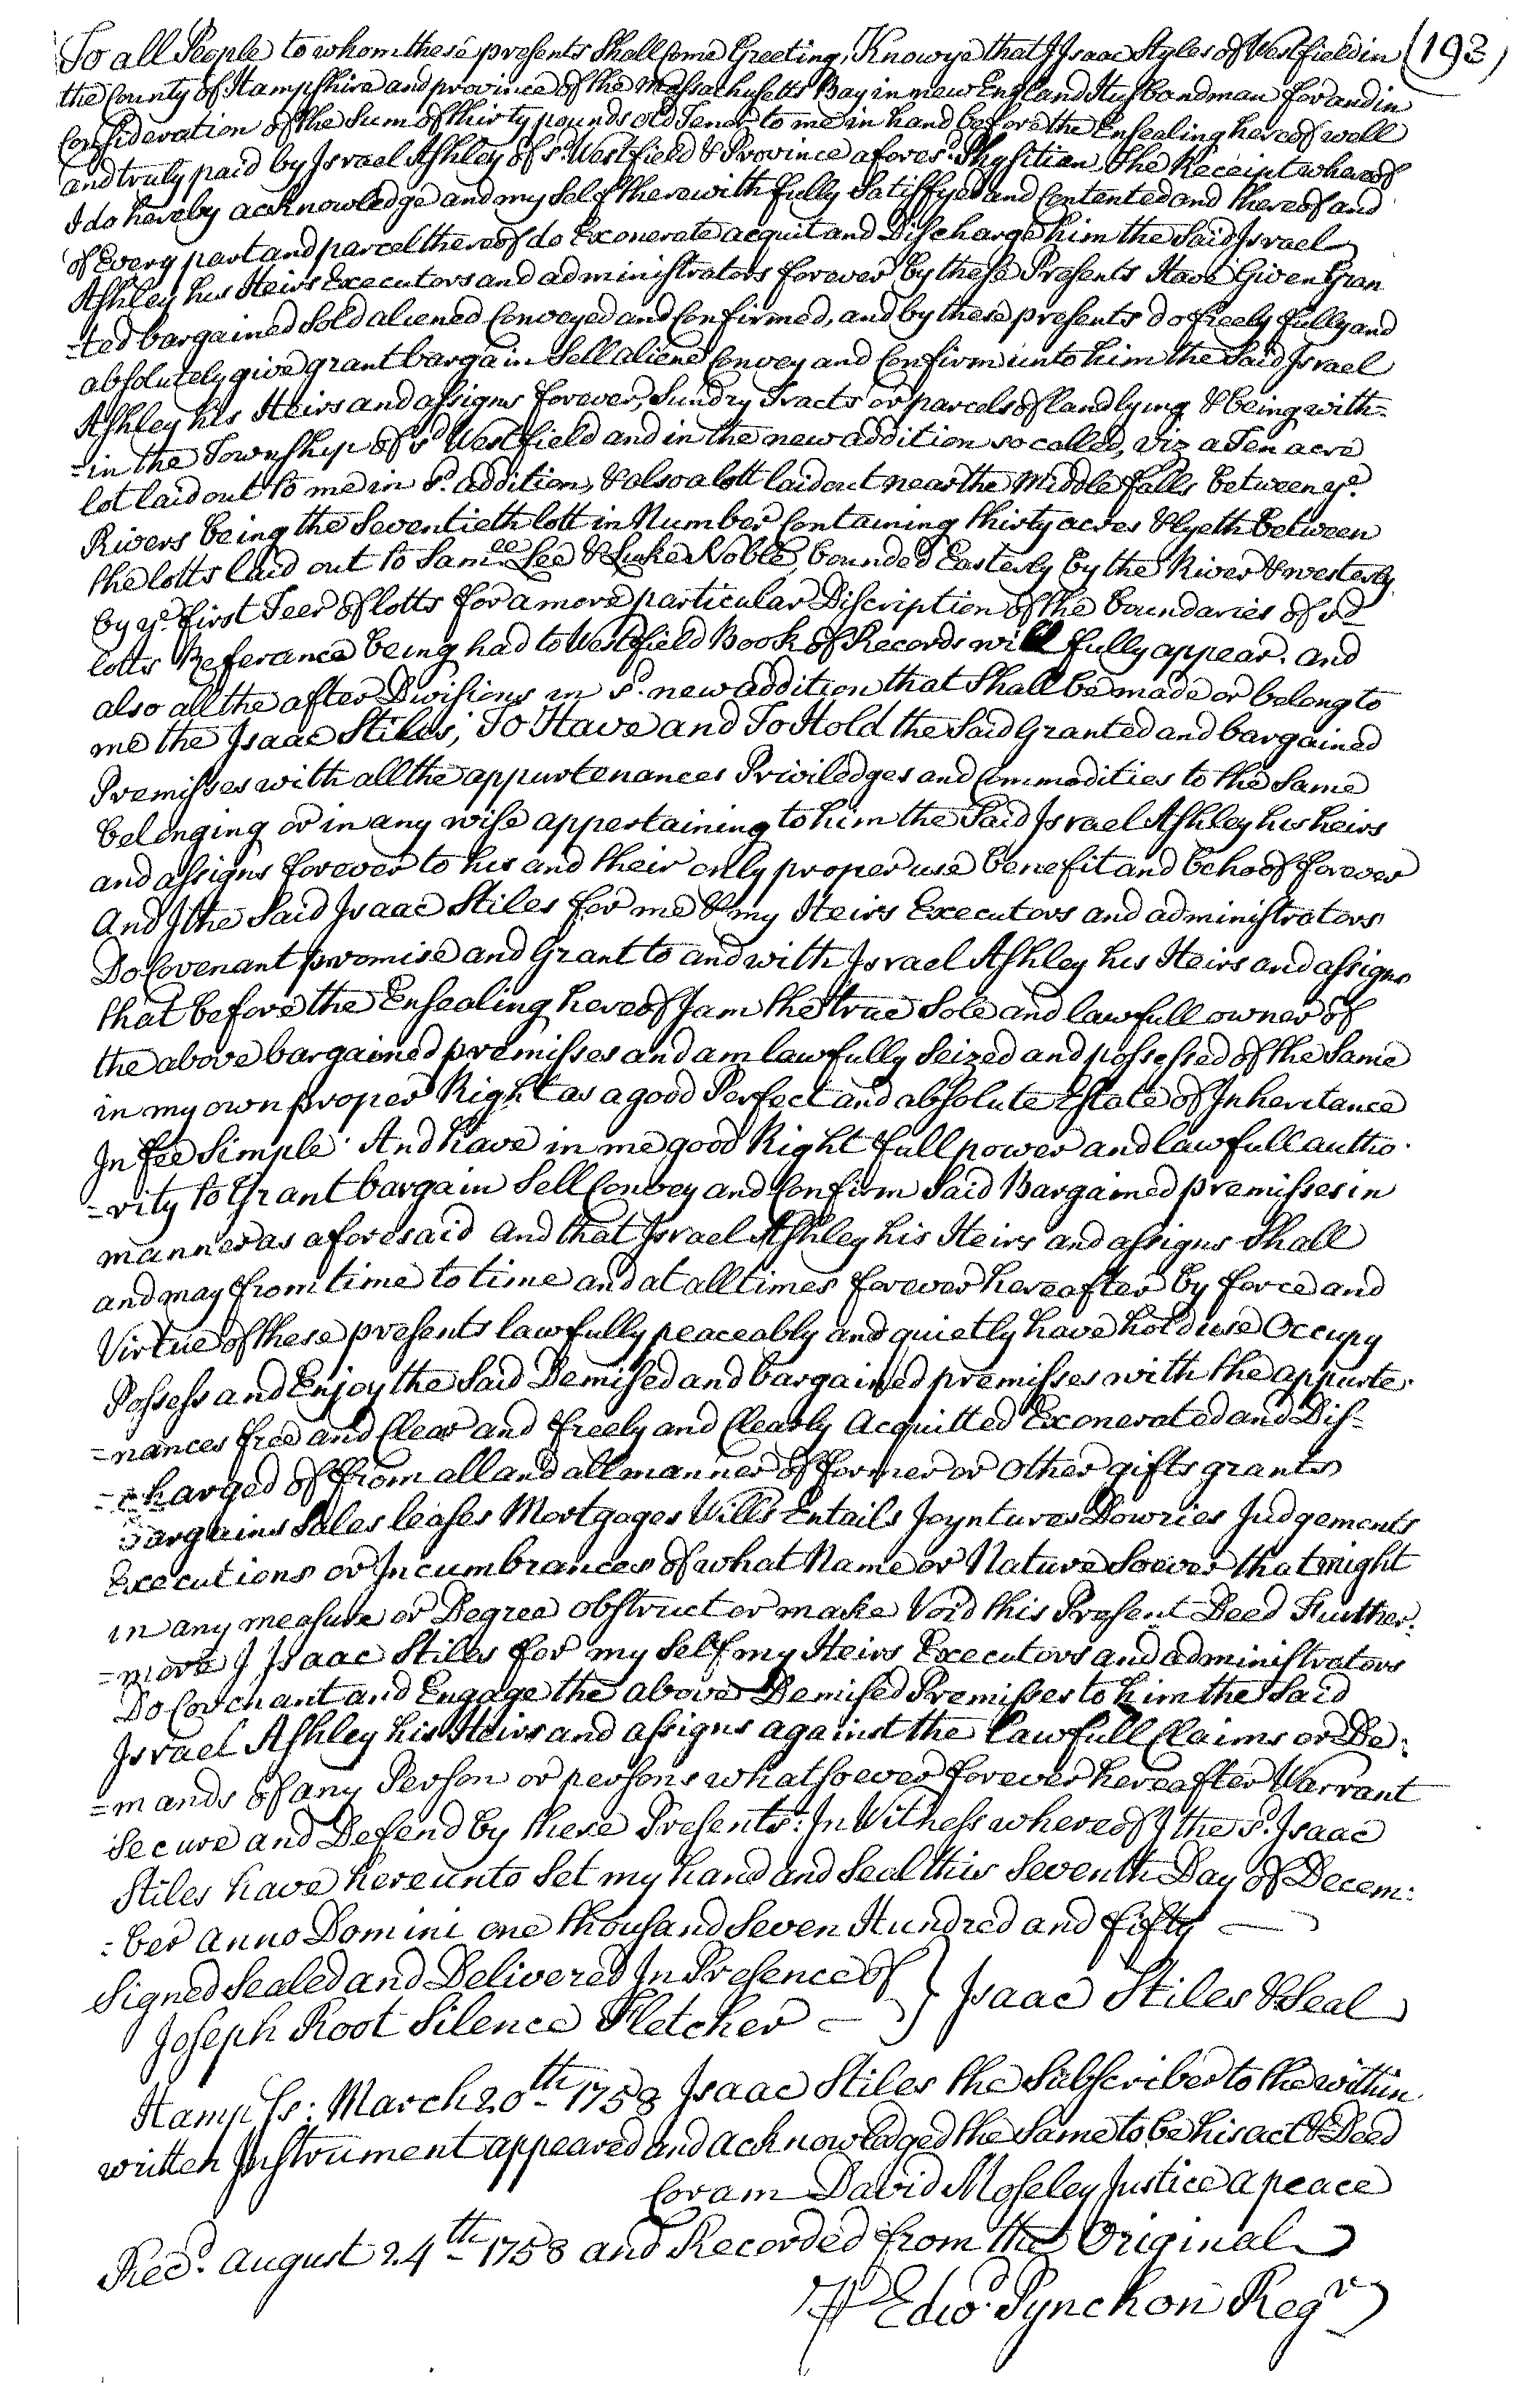 To all People to whom these presents Shall Come Greeting, Know ye that I Isaac Styles of Westfield in (193)
the County of Hampshire and province of the Massachusetts Bay in new England Husbandman for and in
Consideration of the Sum of thirty pounds old Tenor to me in hand before the Ensealing hereof well
and truly paid by Israel Ashley of sd. Westfield & Province aforesd. Physitian the Receipt whereof
I do hereby acknowledge and my Self therewith fully Satisfyed and Contented and thereof and
of Every part and parcel thereof do Exonerate acquit and Discharge him the Said Israel
Ashley his Heirs Executors and administrators forever by these Presents Have Given Gran
=ted bargained Sold aliened Conveyed and Confirmed, and by these presents do freely fully and
absolutely give grant bargain Sell aliene Convey and Confirm unto him the Said Israel
Ashley his Heirs and assigns forever, Sundry Tracts or parcels of land lying & being with=
=in the Township of sd Westfield and in the new addition so called, viz a Ten acre
lot laid out to me in sd. addition, & also a lott laid out near the Middle falls between ye.
Rivers being the Seventieth lott in Number Containing thirty acres & lyeth between
the lotts laid out to Samll Lee & Luke Noble, bounded Easterly by the River & westerly
by ye. first Teer of lotts for a more particular Discription of the boundaries of sd
lotts Referance being had to Westfield Book of Records will fully appear. and
also all the after Divisions in sd. new addition that Shall be made or belong to
me the Isaac Stiles; To Have and To Hold the Said Granted and bargained
Premisses with all the appurtenances Priviledges and Commodities to the Same
belonging or in any wise appertaining to him the Said Israel Ashley his heirs
and assigns forever to his and their only proper use benefit and behoof forever
And I the Said Isaac Stiles for me & my Heirs Executors and administrators
Do Covenant promise and Grant to and with Israel Ashley his Heirs and assigns
that before the Ensealing hereof I am the true Sole and lawfull owner of
the above bargained premisses and am lawfully Seized and possessed of the Same
in my own proper Right as a good Perfect and absolute Estate of Inheritance
In fee Simple. And have in me good Right full power and lawfull autho.
=rity to Grant bargain Sell Convey and Confirm Said Bargained premisses in
manner as aforesaid and that Israel Ashley his Heirs and assigns Shall
and may from time to time and at all times forever hereafter by force and
Virtue of these presents lawfully peaceably and quietly have hold use Occupy
Possess and Enjoy the Said Demised and bargained premisses with the appurte.
=nances free and Clear and freely and Clearly Acquitted Exonerated and Dis=
=charged of from all and all manner of former or other gifts grants
Bargains Sales leases Mortgages Wills Entails Joyntures Dowries Judgements
Executions or Incumbrances of what Name or Nature Soever that might
in any measure or Degree obstruct or make Void this Present Deed Further.
=more I Isaac Stiles for my Self my Heirs Executors and administrators
Do Covenant and Engage the above Demised Premisses to him the Said
Israel Ashley his Heirs and assigns against the lawfull Claims or De:
=mands of any Person or persons whatsoever forever hereafter Warrant
Secure and Defend by these Presents: In Witness whereof I the sd. Isaac
Stiles have hereunto Set my hand and Seal this Seventh Day of Decem:
:ber anno Domini one thousand Seven Hundred and fifty
Signed Sealed and Delivered In Presence of } Isaac Stiles & Seal
Joseph Root Silence Fletcher
Hamp Ss: March 20th 1758 Isaac Stiles the Subscriber to the within
written Instrument appeared and acknowledged the Same to be his act & Deed
Coram David Moseley Justice a peace
Recd. August 24th 1758 and Recorded from the Original
P Edwd. Pynchon Regr